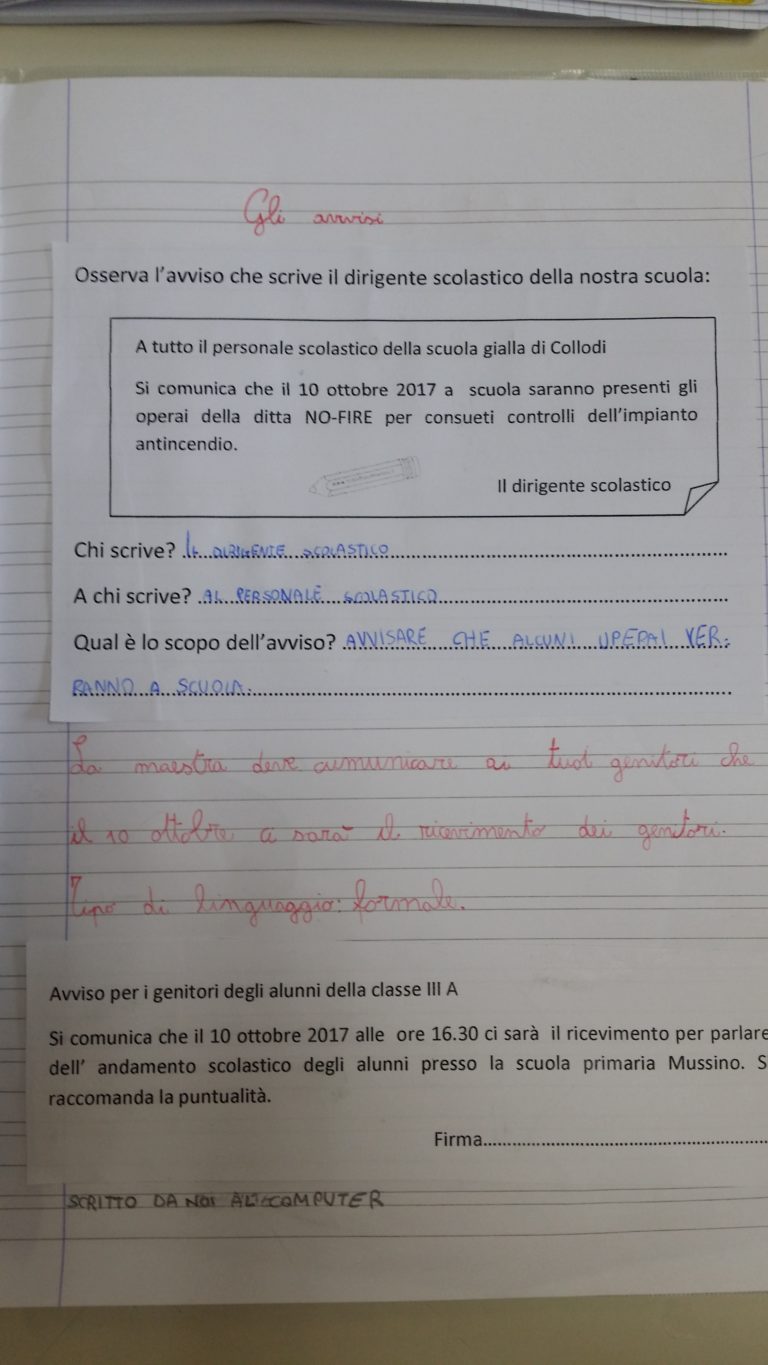 Gli avvisi
Osserva l'avviso che scrive il dirigente scolastico della nostra scuola:
A tutto il personale scolastico della scuola gialla di Collodi
Si comunica che il 10 ottobre 2017 a scuola saranno presenti gli
operai della ditta NO-FIRE per consueti controlli dell'impianto
antincendio.
Il dirigente scolastico
Chi scrive? IL DIRIGENTE SCOLASTICO
A chi scrive? AL PERSONALE SCOLASTICO
Qual è lo scopo dell'avviso? AVVISARE CHE ALCUNI UPEPAI VER-
RANNO A SCUOLA.
La maestra deve comunicare ai tuoi genitori che
il 10 ottobre ci sarà il ricevimento dei genitori.
Tipo di linguaggio: formale.
Avviso per i genitori degli alunni della classe III A
Si comunica che il 10 ottobre 2017 alle ore 16.30 ci sarà il ricevimento per parlare
dell' andamento scolastico degli alunni presso la scuola primaria Mussino. S
raccomanda la puntualità.
Firma
SCRITTO DA NOI AL COMPUTER